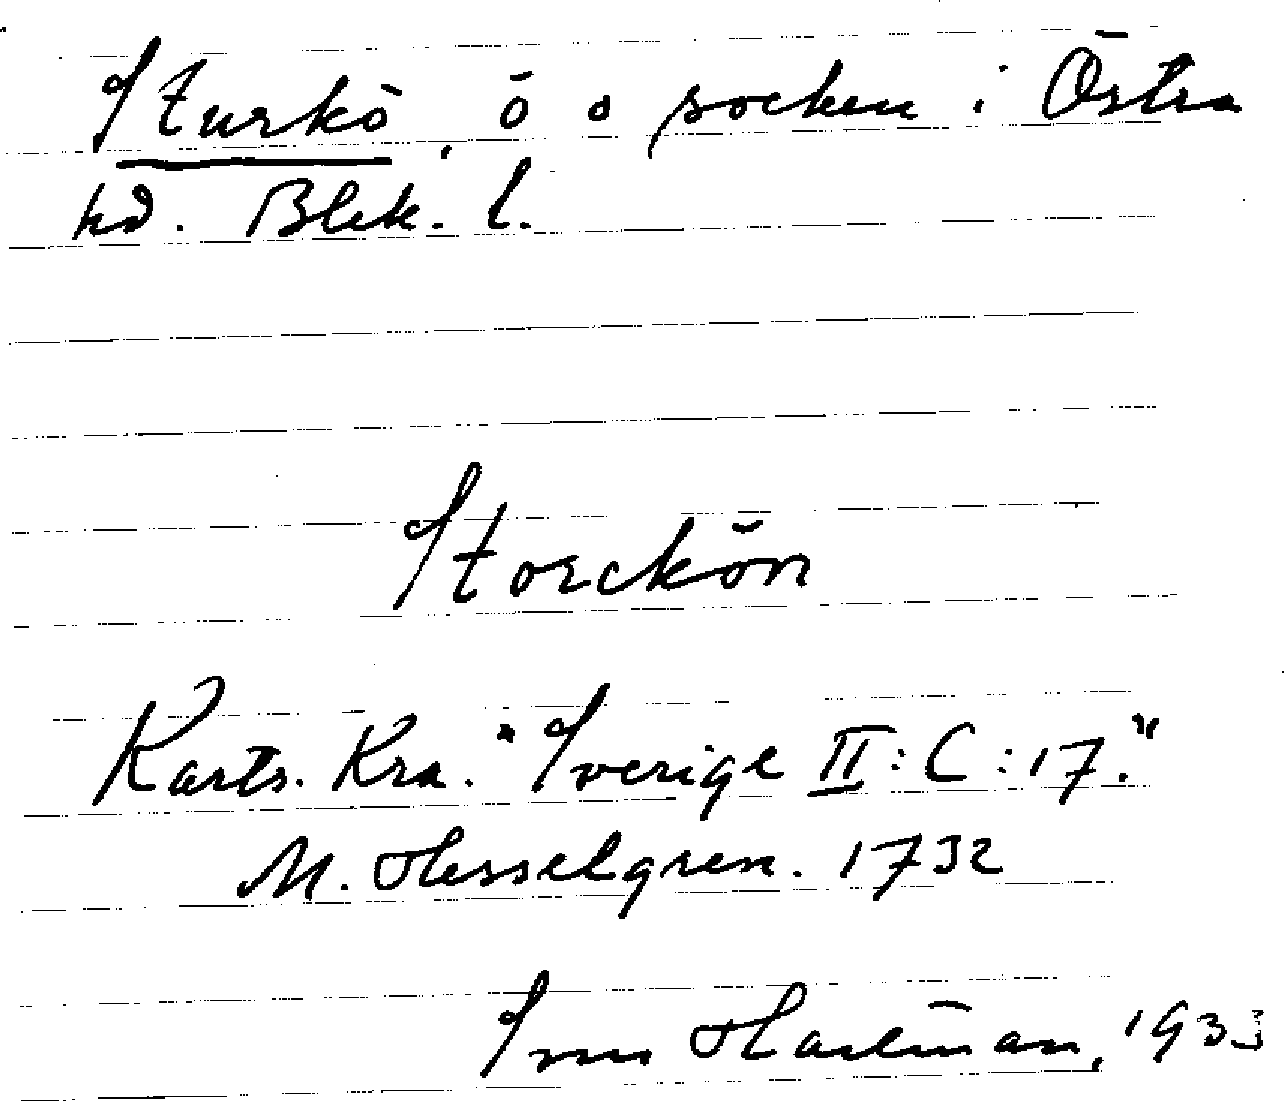 Sturkö, ö o socken i Östra
hd. Blek. l.
Storckön
Karts. Kra. "Sverige II:C:17."
M. Hesselgren. 1732
1933